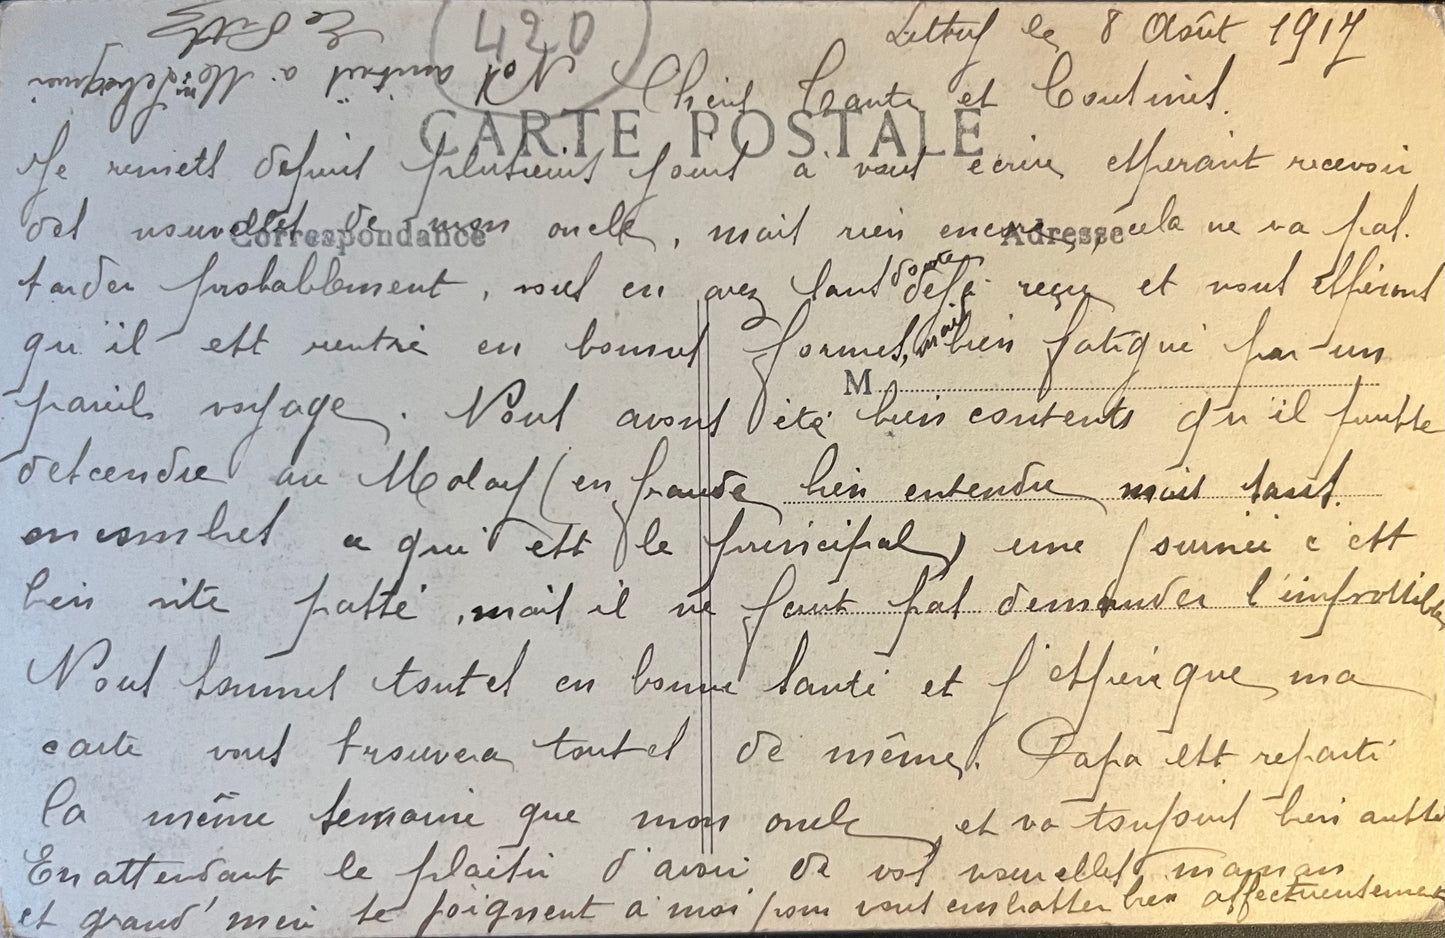 420
le 8 Août 1917
Chers Tante et Cousines.
CARTE POSTALE
Je remets depuis plusieurs jours à vous écrire, espérant recevoir
Correspondance
Adresse
des nouvelles de mon oncle, mais rien encore, cela ne va pas
tarder probablement, vous en avez sans doute déjà reçu et nous espérons
qu'il est rentré en bonnes formes, mais bien fatigué par un
M
pareil voyage. Nous avons été bien contents qu'il puisse
descendre au Molay (en fraude bien entendu mais sans
encombres ce qui est le principal) une journée c'est
bien vite passé, mais il ne faut pas demander l'impossible
Nous sommes toutes en bonne santé et j'espère que ma
carte vous trouvera toutes de même. Papa est reparti
la même semaine que mon oncle, et va toujours bien aussi
En attendant le plaisir d'avoir de vos nouvelles, maman
et grand'mère se joignent à moi pour vous embrasser bien affectueusement